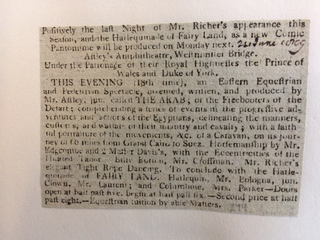 Positively the last Night of Mr. Richer's appearance this
Season, and the Harlequinade of Fairy Land, as a new Comic
Pantomime will be produced on Monday next. 21 June 1799
Astley's Amphitheatre, Westminster Bridge.
Under the Patronage of their Royal Highnesses the Prince of
Wales and Duke of York.
THIS EVENING (18th time), an Eastern Equestrian
and Pedestrian Spectacle, invented, written, and produced by
Mr. Astley, jun. called THE ARAB, or the Freebooters of the
Desart; comprehending a series of events in the progressive ad-
ventures and actions of the Egyptians, delineating the manners,
customs, and warfare of their infantry and cavalry; with a faith-
ful portrait of the movements, &c. of a Caravan, on its jour-
ney of 60 miles from Grand Cairo to Suez. Horsemanship by Mr.
Edgcombe and 2 Master Davis's, with the Eccentricities of the
Hunted Tailor. Billy Button, Mr. Crossman. Mr. Richer's
elegant Tight Rope Dancing. To conclude with the Harle-
quinade of FAIRY LAND. Harlequin, Mr. Bologna, jun.
Clown, Mr. Laurent; and Columbine, Mrs. Parker.—Doors
open at half past five, begin at half past six.—Second price at half
past eight.—Equestrian tuition by able Masters.